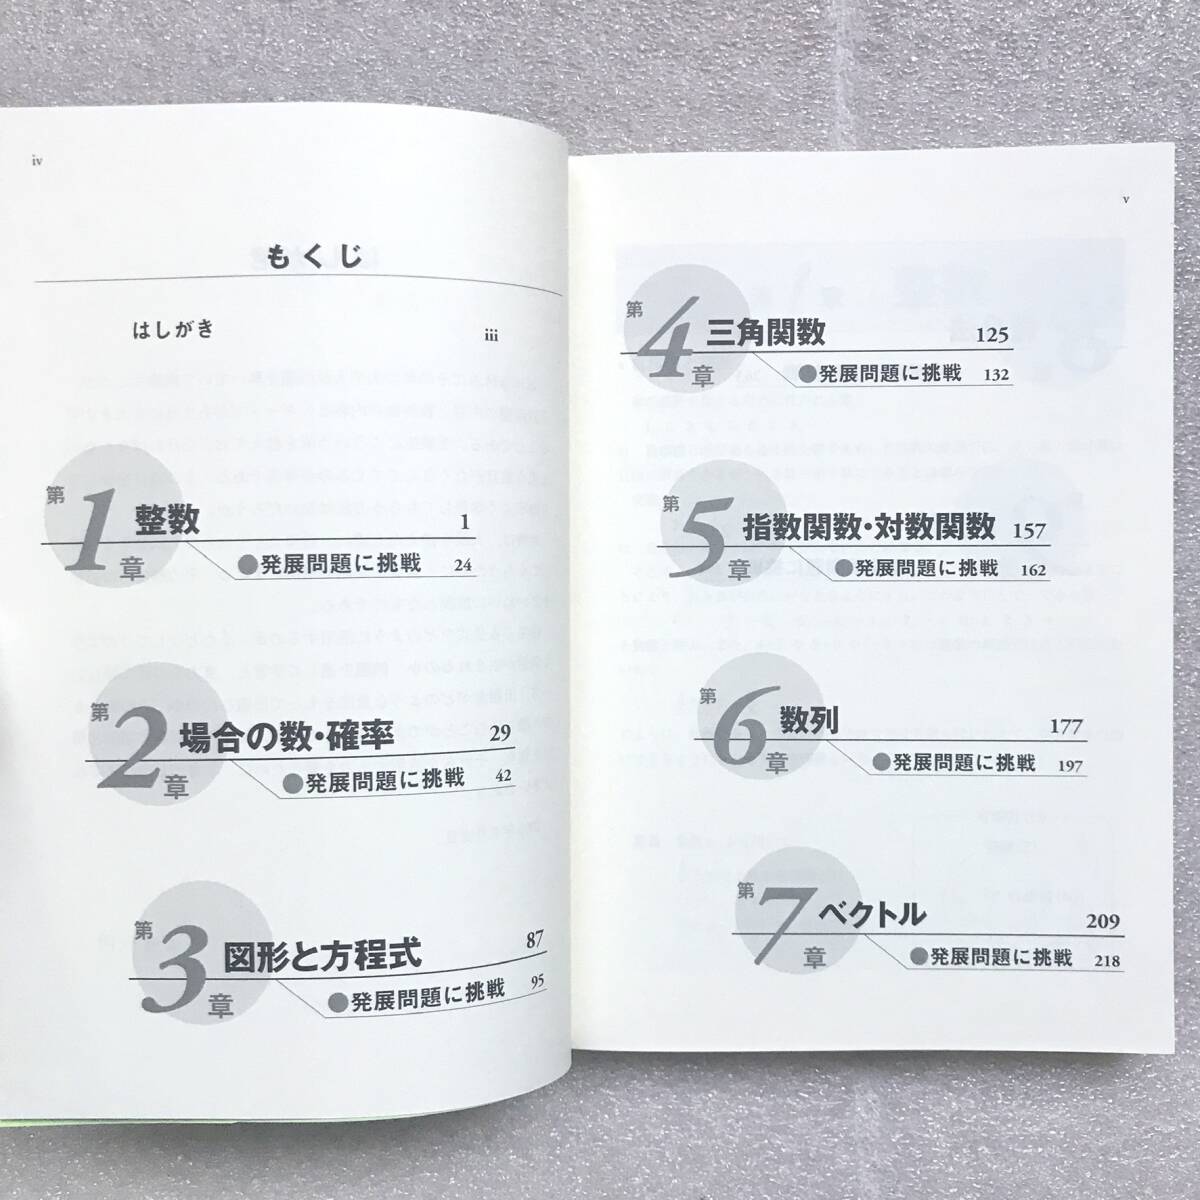 iv
もくじ
はしがき iii
第1章 整数 1
●発展問題に挑戦 24
第2章 場合の数・確率 29
●発展問題に挑戦 42
第3章 図形と方程式 87
●発展問題に挑戦 95
v
第4章 三角関数 125
●発展問題に挑戦 132
第5章 指数関数・対数関数 157
●発展問題に挑戦 162
第6章 数列 177
●発展問題に挑戦 197
第7章 ベクトル 209
●発展問題に挑戦 218